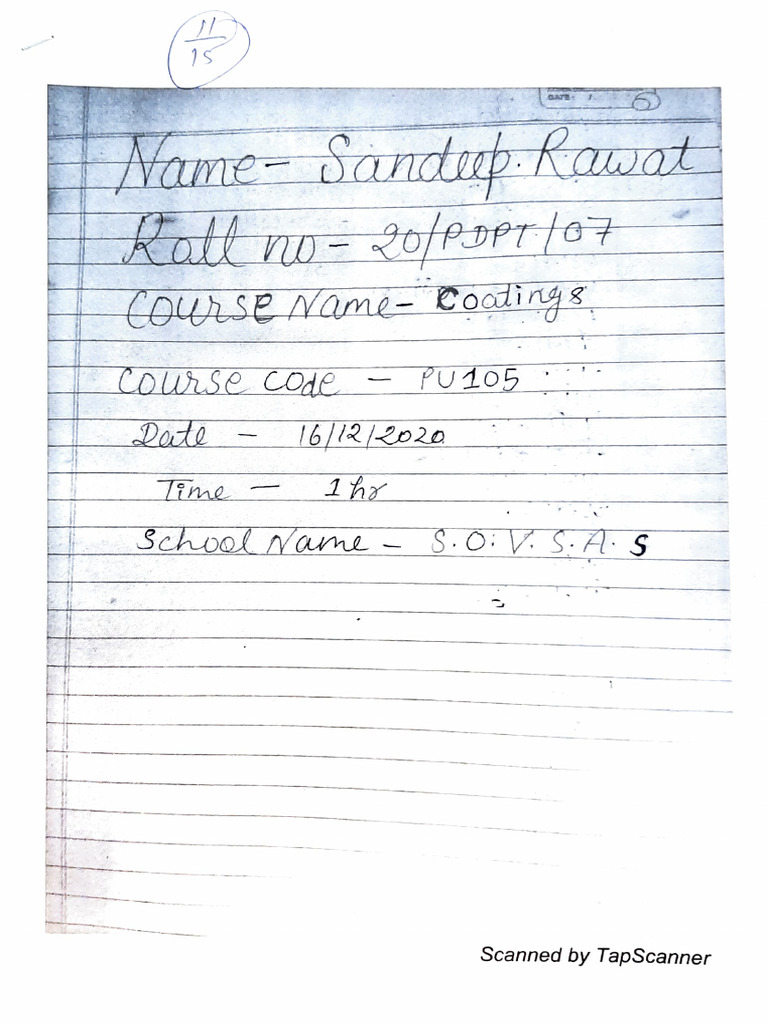 11
15
DATE: /
Name- Sandeep. Rawat
Roll no - 20/PDPT/07
COURSE Name- Coatings
Course code - PU105
Date - 16/12/2020
Time - 1 hr
School Name - S.O.V.S.A.S
Scanned by TapScanner